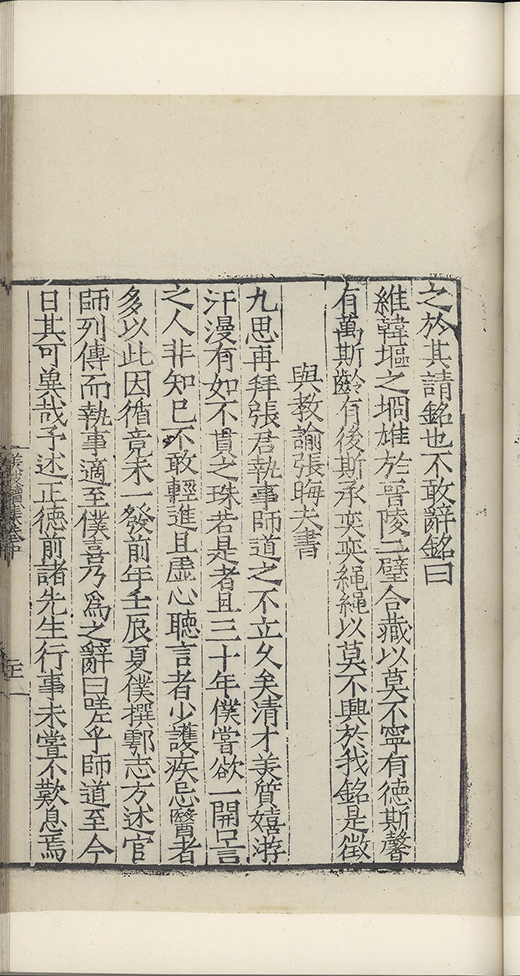 之於其請銘也不敢辭銘曰
維韓塸之堈雄於晉陵二璧合藏以莫不寧有德斯馨
有萬斯齡有後斯承奕奕繩繩以莫不興於我銘是徵
與教諭張晦夫書
九思再拜張君執事師道之不立久矣清才美質嬉游
汗漫有如不貫之珠若是者且三十年僕嘗欲一開口言
之人非知已不敢輕進且虛心聽言者少護疾忌醫者
多以此因循竟未一發前年壬辰夏僕撰鄠志方述官
師列傳而執事適至僕喜乃為之辭曰嗟乎師道至今
日其可莫哉予述正德前諸先生行事未嘗不歎息焉